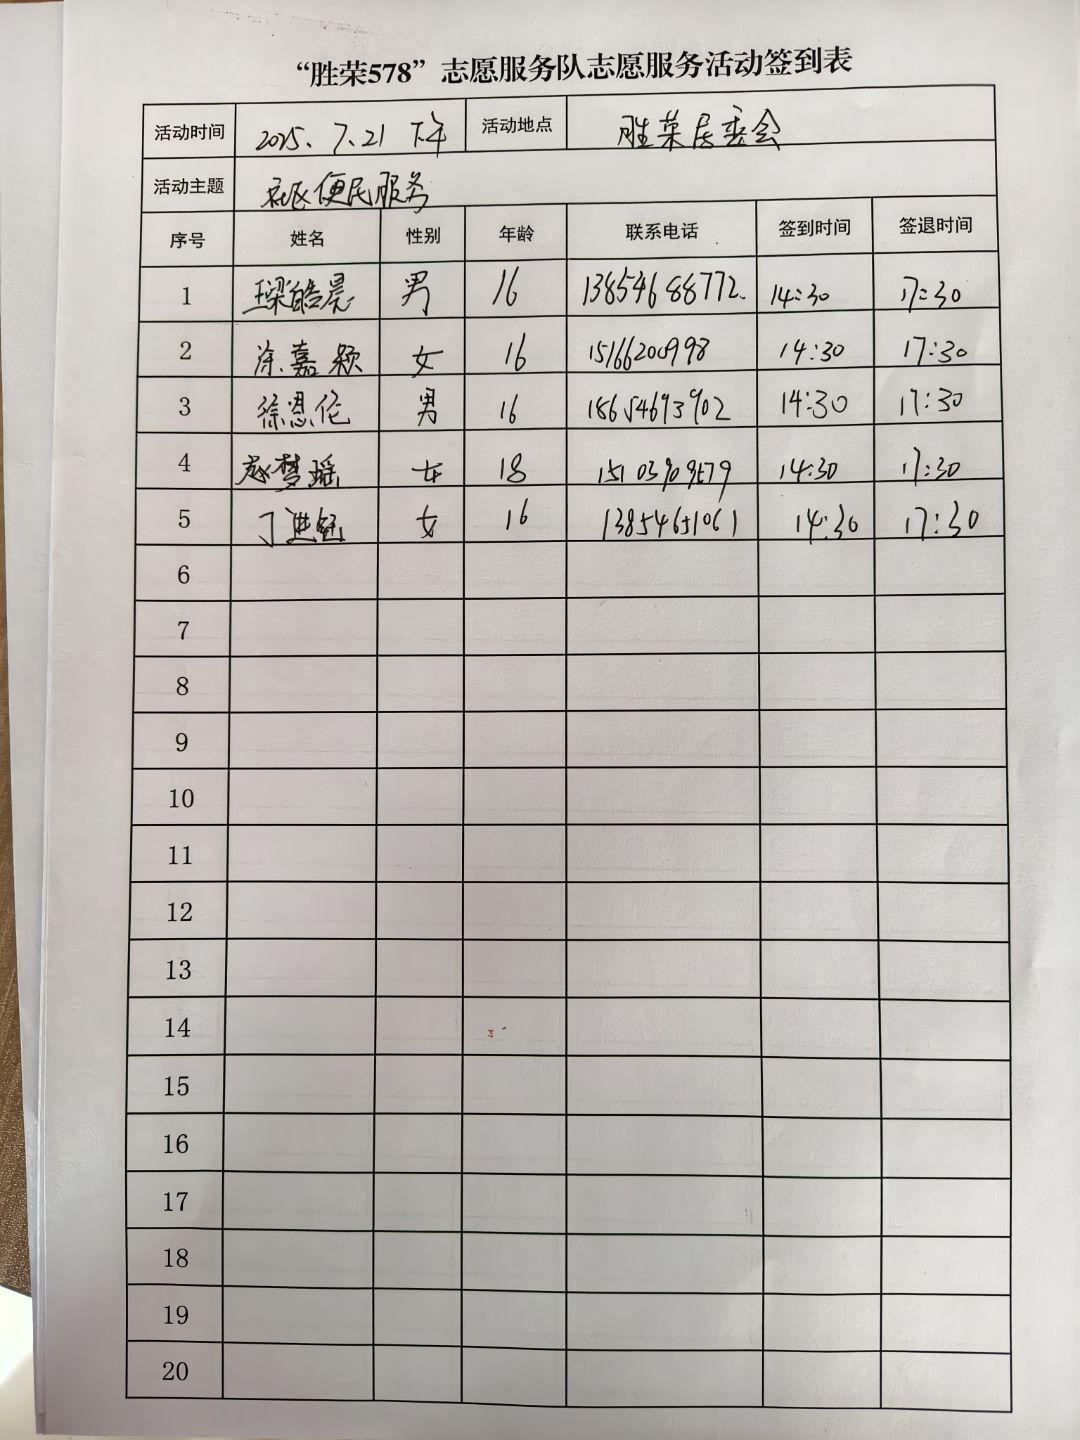 “胜荣578”志愿服务队志愿服务活动签到表
活动时间 2025.7.21 下午 活动地点 胜荣居委会
活动主题 社区便民服务
序号 姓名 性别 年龄 联系电话 签到时间 签退时间
1 梁皓晨 男 16 13854688772. 14:30 17:30
2 涂嘉颖 女 16 15166200998 14:30 17:30
3 徐恩伦 男 16 18654693902 14:30 17:30
4 梦瑶 女 18 14:30 17:30
5 丁 女 16 13854651061 14:30 17:30
6
7
8
9
10
11
12
13
14
15
16
17
18
19
20